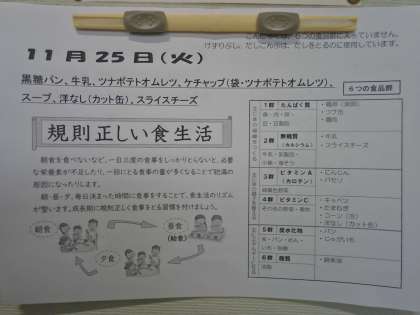 こんだては、6つの食品群に入っていません。
けずりぶし、だしこんぶは、だしをとるのに使用しています。
11月25日(火)
黒糖パン、牛乳、ツナポテトオムレツ、ケチャップ(袋・ツナポテトオムレツ)、
スープ、洋なし(カット缶)、スライスチーズ
規則正しい食生活
朝食を食べないなど、一日三度の食事をしっかりとらないと、必要
な栄養素が不足したり、一回にとる食事の量が多くなることで肥満の
原因になったりします。
朝・昼・夕、毎日決まった時間に食事をすることで、食生活のリズム
が整います。成長期に規則正しく食事をとる習慣を付けましょう。
朝食
昼食
(給食)
夕食
6つの食品群
1群 たんぱく質
魚・肉・卵・
豆・豆製品
・鶏卵
・ツナ缶
・鶏肉
2群 無機質
(カルシウム)
牛乳・乳製品・
小魚・海そう
・牛乳
・スライスチーズ
3群 ビタミンA
(カロテン)
緑黄色野菜
・にんじん
・パセリ
4群 ビタミンC
その他の野菜・果物
・キャベツ
・たまねぎ
・コーン(缶)
・洋なし(カット缶)
5群 炭水化物
米・パン・めん・
いも・砂糖
・パン
・じゃがいも
6群 脂質
油脂